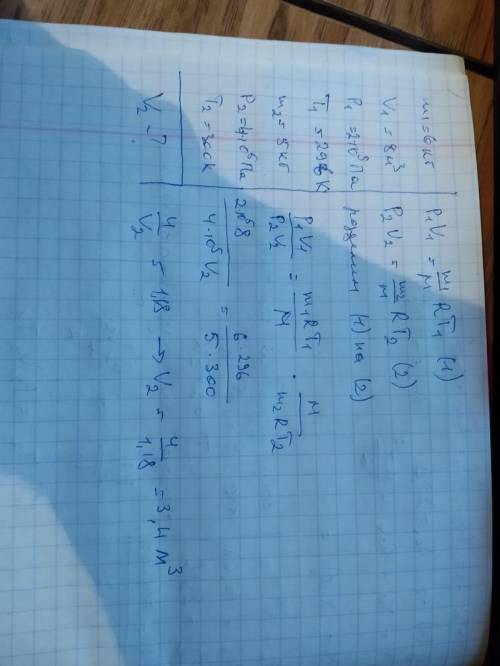 m₁ = 6 кг
V₁ = 8 м³
P₁ = 2·10⁵ Па
T₁ = 296 K
m₂ = 5 кг
P₂ = 4·10⁵ Па
T₂ = 300 K
V₂ - ?
P₁V₁ = m₁/M RT₁ (1)
P₂V₂ = m₂/M RT₂ (2)
разделим (1) на (2)
P₁V₁/P₂V₂ = m₁RT₁/M · M/m₂RT₂
2·10⁵·8/4·10⁵V₂ = 6·296/5·300
4/V₂ = 1,18 → V₂ = 4/1,18 = 3,4 м³